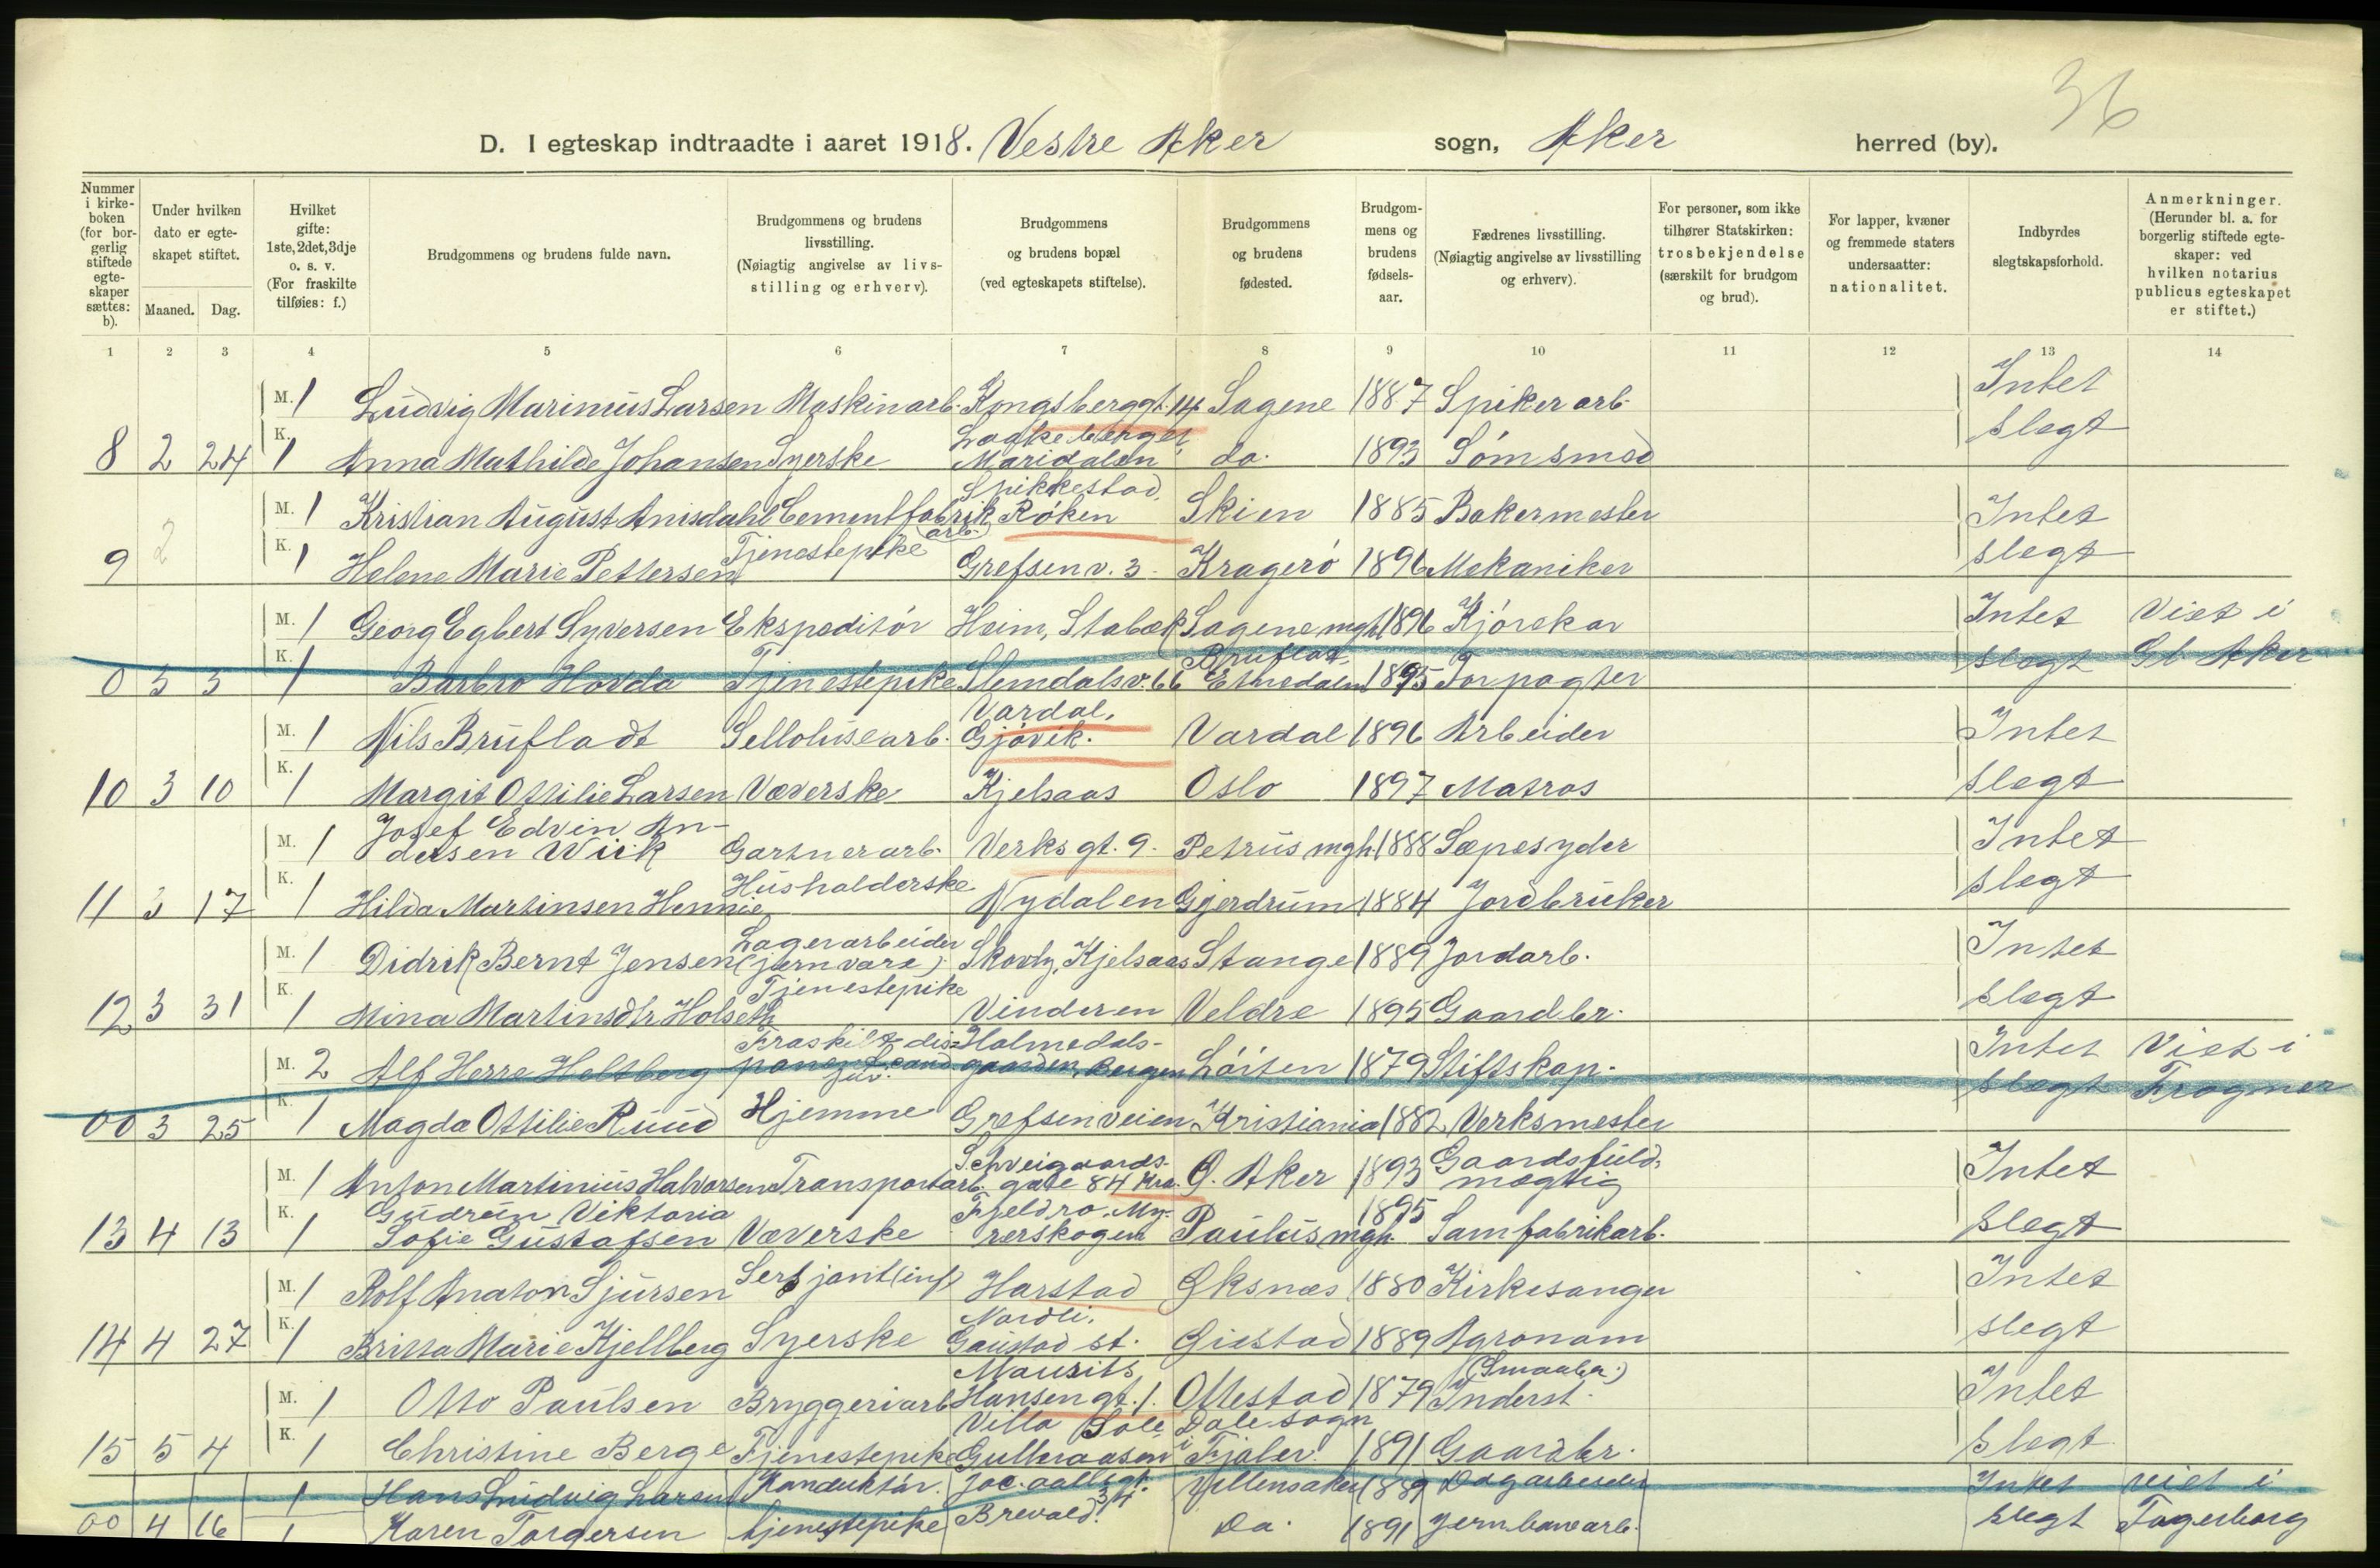 36
D. I egteskap indtraadte i aaret 1918. Vestre Aker sogn, Aker herred (by).
Nummer i kirke-boken (for bor-gerlig stiftede egte-skaper sættes: b).
Under hvilken dato er egte-skapet stiftet.
Maaned. Dag.
Hvilket gifte: 1ste, 2det, 3dje o. s. v. (For fraskilte tilføies: f.)
Brudgommens og brudens fulde navn.
Brudgommens og brudens livsstilling. (Nøiagtig angivelse av livs-stilling og erhverv).
Brudgommens og brudens bopæl (ved egteskapets stiftelse).
Brudgommens og brudens fødested.
Brudgom-mens og brudens fødsels-aar.
Fædrenes livsstilling. (Nøiagtig angivelse av livsstilling og erhverv).
For personer, som ikke tilhører Statskirken: trosbekjendelse (særskilt for brudgom og brud).
For lapper, kvæner og fremmede staters undersaatter: nationalitet.
Indbyrdes slegtskapsforhold.
Anmerkninger. (Herunder bl. a. for borgerlig stiftede egte-skaper: ved hvilken notarius publicus egteskapet er stiftet.)
1 2 3 4 5 6 7 8 9 10 11 12 13 14
M. 1 Ludvig Marinius Larsen Maskinarb. Kongsberggt. 14 Sagene 1887 Spikerarb. Intet
8 2 24 K. 1 Anna Mathilde Johansen Syerske Maridalen do. 1893 Sømsmed slegt
M. 1 Kristian August Anisdahl Cementfabrik (arb.) Spikkestad, Røken Skien 1885 Bakermester Intet
9 2 K. 1 Helene Marie Pettersen Tjenestepike Grefsenv. 3. Kragerø 1896 Mekaniker slegt
M. 1 Georg Egbert Syversen Ekspeditør Heim, Stabæk Sagene mgh. 1896 Kjørekar Intet Viet i
0 3 3 K. 1 Barbro Hovda Tjenestepike Slemdalsv. 66 Bruflat, Etnedalen 1895 Forpagter slegt Gl. Aker
M. 1 Nils Brufladt Sellolusearb. Vardal, Gjøvik. Vardal 1896 Arbeider Intet
10 3 10 K. 1 Margit Ottilie Larsen Væverske Kjelsaas Oslo 1897 Matros slegt
M. 1 Josef Edvin Andersen Wiik Gartnerarb. Verksgt. 9. Petrus mgh. 1888 Sæpesyder Intet
11 3 17 K. 1 Hilda Martinsen Hennie Husholderske Nydalen Gjerdrum 1884 Jordbruker slegt
M. 1 Didrik Bernt Jensen Lagerarbeider (jernvare). Skovly, Kjelsaas Stange 1889 Jordarb. Intet
12 3 31 K. 1 Mina Martinsdtr Holseth Tjenestepike Vinderen Veldre 1895 Gaardbr. slegt
M. 2 Alf Herre Holtberg Fraskilt disponent cand. jur. Holmedalsgaarden, Bergen Løiten 1879 Stiftskap. Intet Viet i
00 3 25 K. 1 Magda Ottilie Ruud Hjemme Grefsenveien Kristiania 1882 Verksmester slegt Frogner
M. 1 Anton Martinius Halvorsen Transportarb. Schveigaardsgate 84 Kra. G. Aker 1893 Gaardsfuldmægtig Intet
13 4 13 K. 1 Gudrun Viktoria Sofie Gustafsen Væverske Fjeldro, Myrerskogen Paulus mgh. 1895 Sømfabrikarb. slegt
M. 1 Rolf Anaton Sjursen Sersjant (inf) Harstad Øksnæs 1880 Kirkesanger Intet
14 4 27 K. 1 Britta Marie Kjellberg Syerske Nordli, Gaustad st. Gistad 1889 Agronom slegt
M. 1 Otto Paulsen Bryggeriarb. Maurits Hansen gt. 1. Ottestad 1879 Inderst. (Smaabr.) Intet
15 5 4 K. 1 Christine Berge Tjenestepike Villa Sole, Gulleraasen Dale sogn i Fjaler. 1891 Gaardbr. slegt
1 Hans Ludvig Larsen Konduktør. Jac. aallsgt. 34. Ullensaker 1889 Dagarbeider Intet viet i
00 4 16 1 Karen Torgersen tjenestepike Brevald. Do. 1891 Jernbanearb. slegt Fagerborg